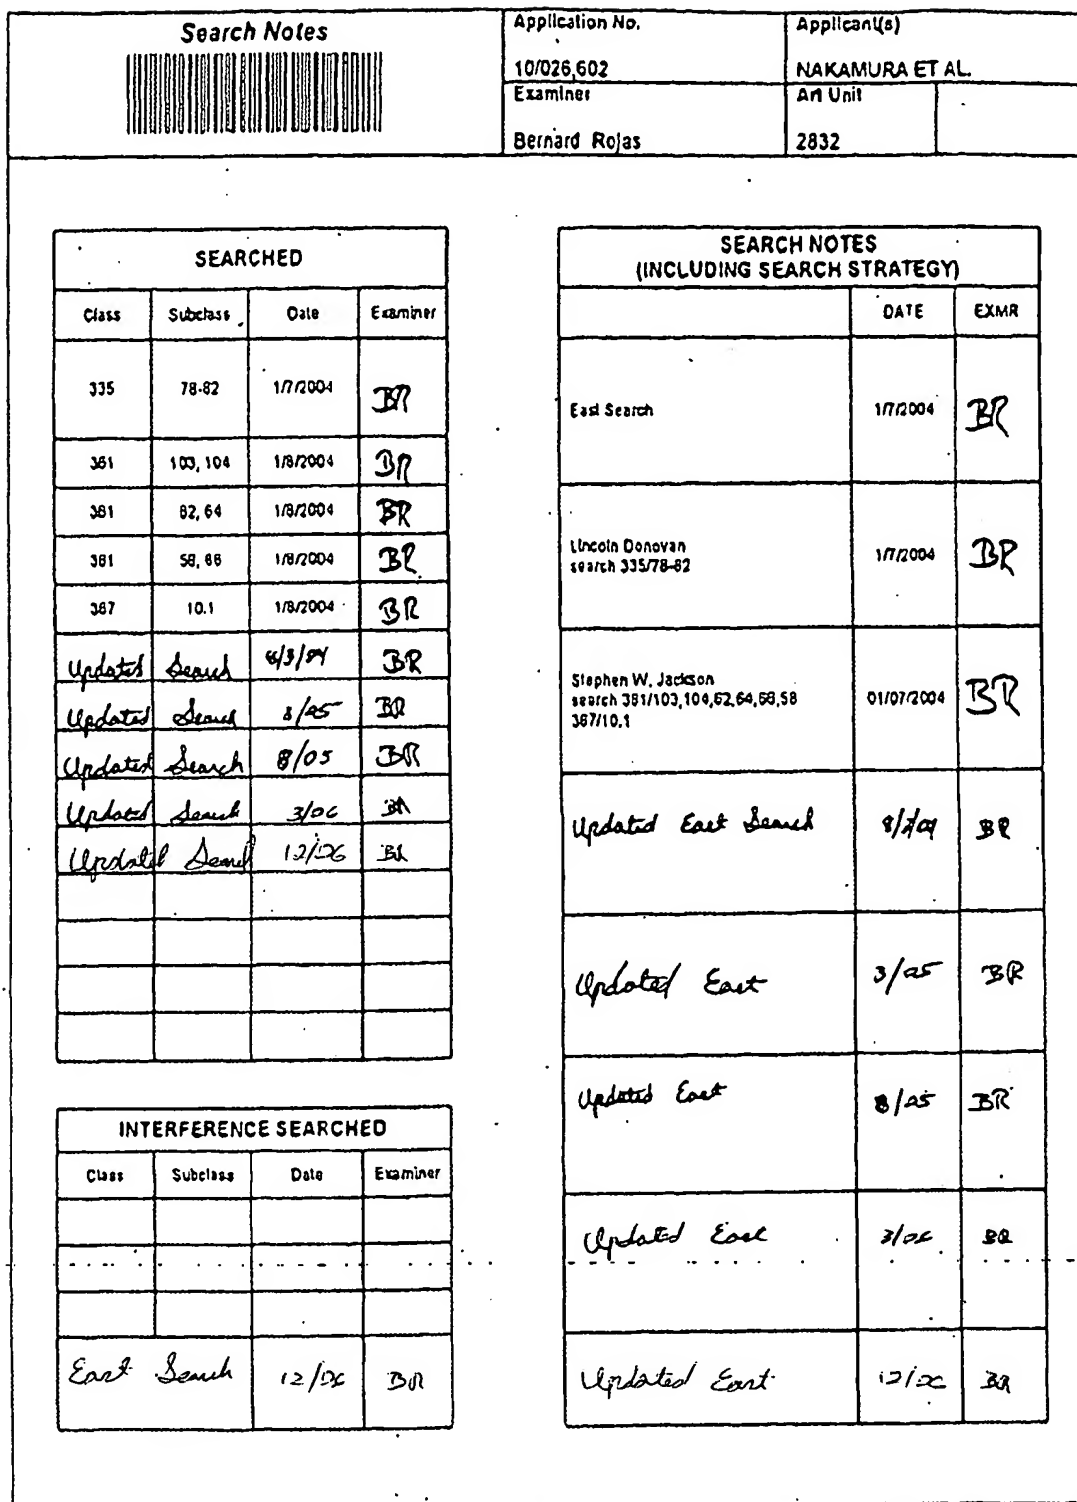 Search Notes
Application No.
Applicant(s)
10/026,602
NAKAMURA ET AL.
Examiner
Art Unit
Bernard Rojas
2832
SEARCHED
Class Subclass Date Examiner
335 78-82 1/7/2004 BR
361 103, 104 1/8/2004 BR
381 82, 64 1/8/2004 BR
381 58, 66 1/8/2004 BR
367 10.1 1/8/2004 BR
Updated Search BR
Updated Search BR
Updated Search 8/05 BR
Updated Search 3/06 BR
Updated Search 12/06 BR
INTERFERENCE SEARCHED
Class Subclass Date Examiner
East Search 12/06 BR
SEARCH NOTES
(INCLUDING SEARCH STRATEGY)
DATE EXMR
East Search 1/7/2004 BR
Lincoln Donovan
search 335/78-82 1/7/2004 BR
Stephen W. Jackson
search 381/103,104,62,64,66,58 01/07/2004 BR
367/10.1
Updated East Search BR
Updated East 3/05 BR
Updated East 8/05 BR
Updated East 3/06 BR
Updated East 12/06 BR